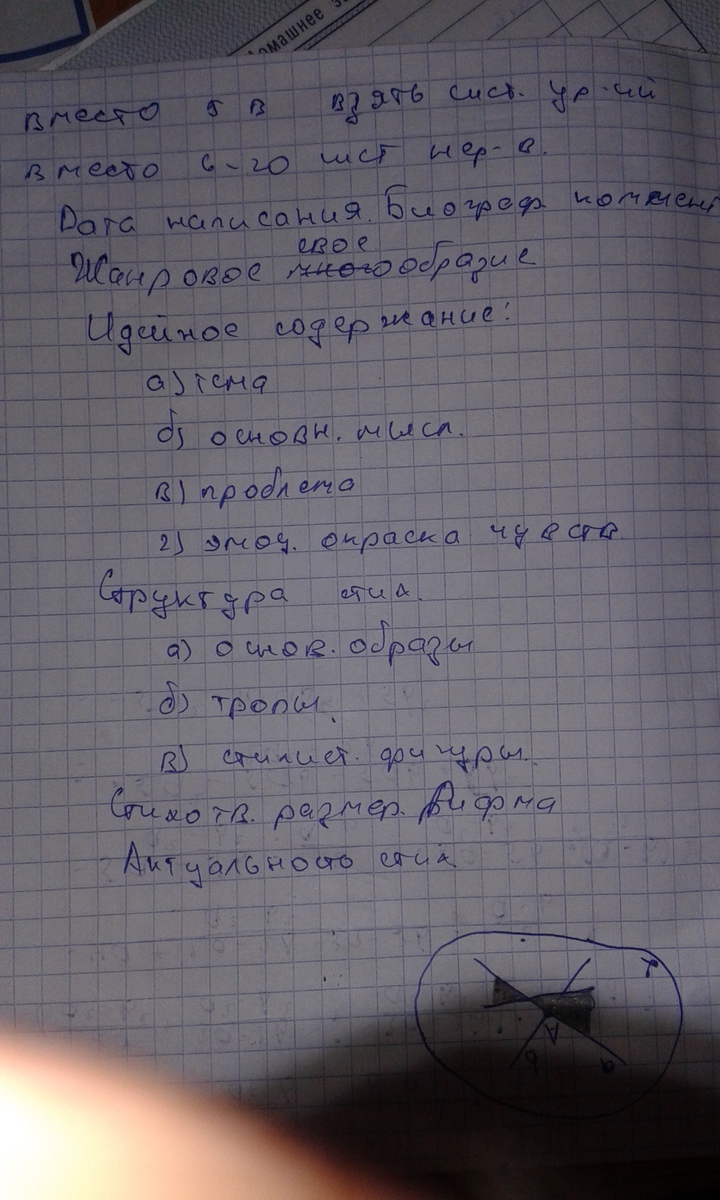 омашнее з
вместо 5 в взять сист. ур-ий
вместо 6-20 сист нер-в.
Дата написания. Биограф коммент
Жанровое многообразие
свое
Идейное содержание:
а) тема
б) основн. мысл.
в) проблема
г) эмоц. окраска чувств
Структура стих.
а) основ. образы
б) тропы.
в) стилист. фигуры.
Стихотв. размер. Рифма
Актуальность стих
A
b
a